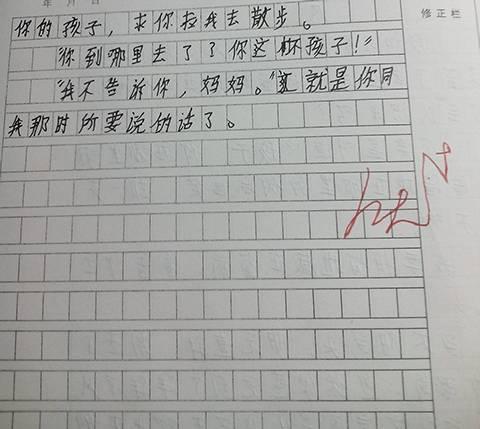 年 月 日
修正栏
你的孩子，求你拉我去散步。
“你到哪里去了？你这个坏孩子！”
“我不告诉你，妈妈。”这就是你同
我那时所要说的话了。